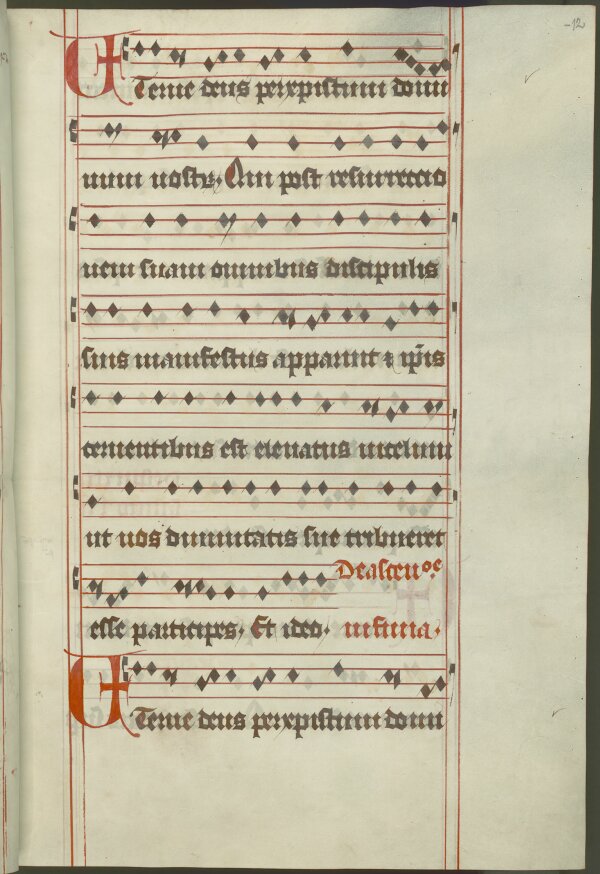 -12
Eterne deus per xpistum domi
num nostrū. Qui post resurrectio
nem suam omnibus discipulis
suis manifestus apparuit ⁊ ip̄is
cernentibus est eleuatus in celum
ut nos diuinitatis sue tribueret
De ascen
esse participes. Et ideo. infima.
Eterne deus per xpistum domi